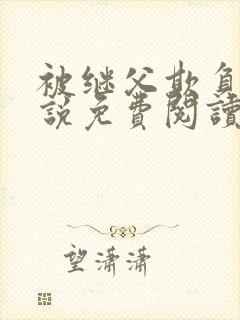 被继父欺负
說免費閱讀
望潇潇